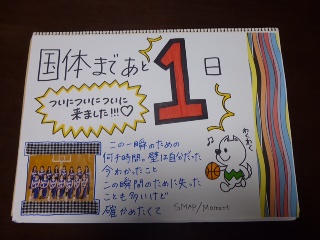 国体まであと1日
ついについについに
来ました!!!♡
わくわく
この一瞬のための
何千時間。壁は自分だった
今わかったこと
この瞬間のために失った
ことも多いけど
確かめたくて
SMAP/Moment